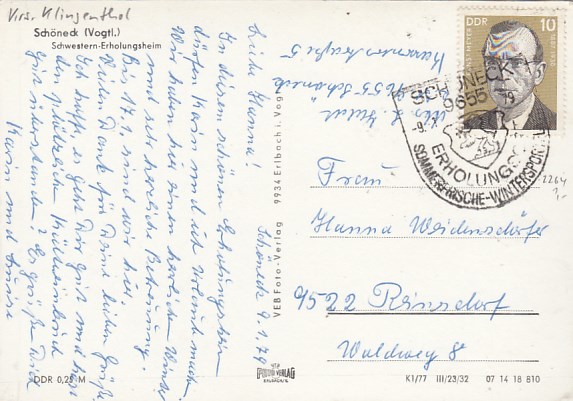 Krs. Klingenthal
Schöneck (Vogtl.)
Schwestern-Erholungsheim
Schöneck 9.1.79
Liebe Hanna!
In diesem schönen Erholungsheim
dürfen Karin und ich Urlaub machen.
Wir haben hier einen herrlichen Winter
und sehr herzliche Betreuung.
Bis 17.1. sind wir hier.
Vielen Dank für Deine lieben Grüße.
Ich hoffe, es geht Dir gut und hast
gut überstanden? Es grüßen Dich
Karin und
DDR 0,25 M
VEB Foto-Verlag 9934 Erlbach i. Vogtl.
FOTO VERLAG
ERLBACH
9655 Schöneck
DDR 10
ERNST MEYER 1887-1930
SCHÖNECK
9655
-9. 79
ERHOLUNGS
SOMMERFRISCHE-WINTERSPORT
2264
1,-
Frau
Hanna Weidensdörfer
9522 Reinsdorf
Waldweg 8
K1/77 III/23/32 07 14 18 810